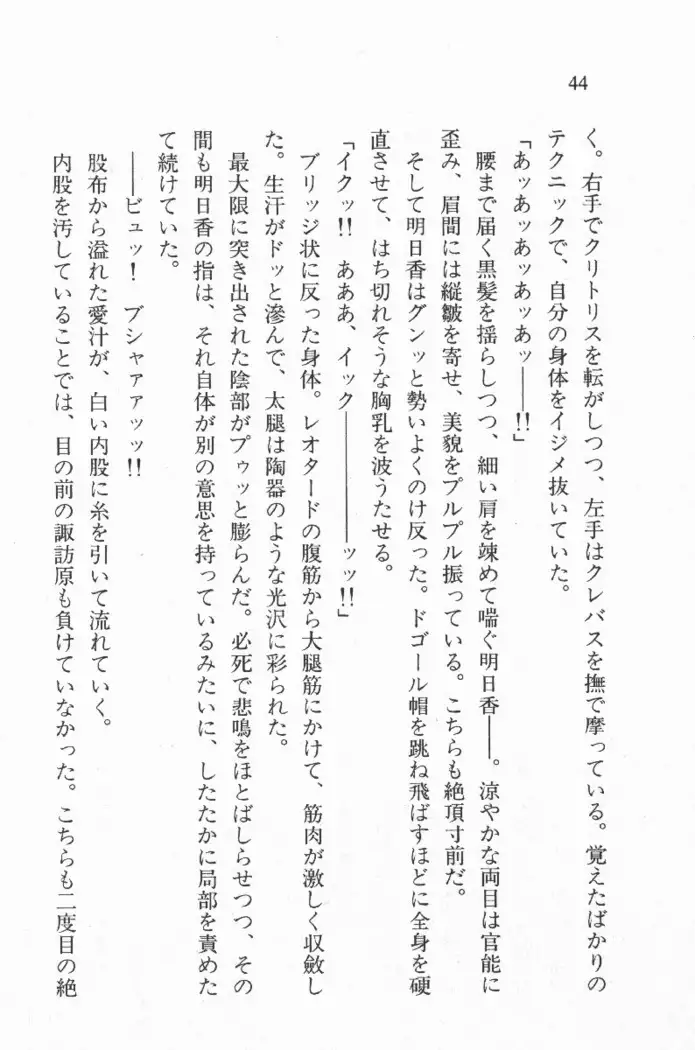 44
く。右手でクリトリスを転がしつつ、左手はクレバスを撫で摩っている。覚えたばかりの
テクニックで、自分の身体をイジメ抜いていた。
「あッあッあッあッあッ――!!」
腰まで届く黒髪を揺らしつつ、細い肩を竦めて喘ぐ明日香――。涼やかな両目は官能に
歪み、眉間には縦皺を寄せ、美貌をプルプル振っている。こちらも絶頂寸前だ。
そして明日香はグンッと勢いよくのけ反った。ドゴール帽を跳ね飛ばすほどに全身を硬
直させて、はち切れそうな胸乳を波うたせる。
「イクッ!! あああ、イック――――――ッッ!!」
ブリッジ状に反った身体。レオタードの腹筋から大腿筋にかけて、筋肉が激しく収斂し
た。生汗がドッと滲んで、太腿は陶器のような光沢に彩られた。
最大限に突き出された陰部がプゥッと膨らんだ。必死で悲鳴をほとばしらせつつ、その
間も明日香の指は、それ自体が別の意思を持っているみたいに、したたかに局部を責めた
て続けていた。
――ビュッ! ブシャァァッッ!!
股布から溢れた愛汁が、白い内股に糸を引いて流れていく。
内股を汚していることでは、目の前の諏訪原も負けていなかった。こちらも二度目の絶